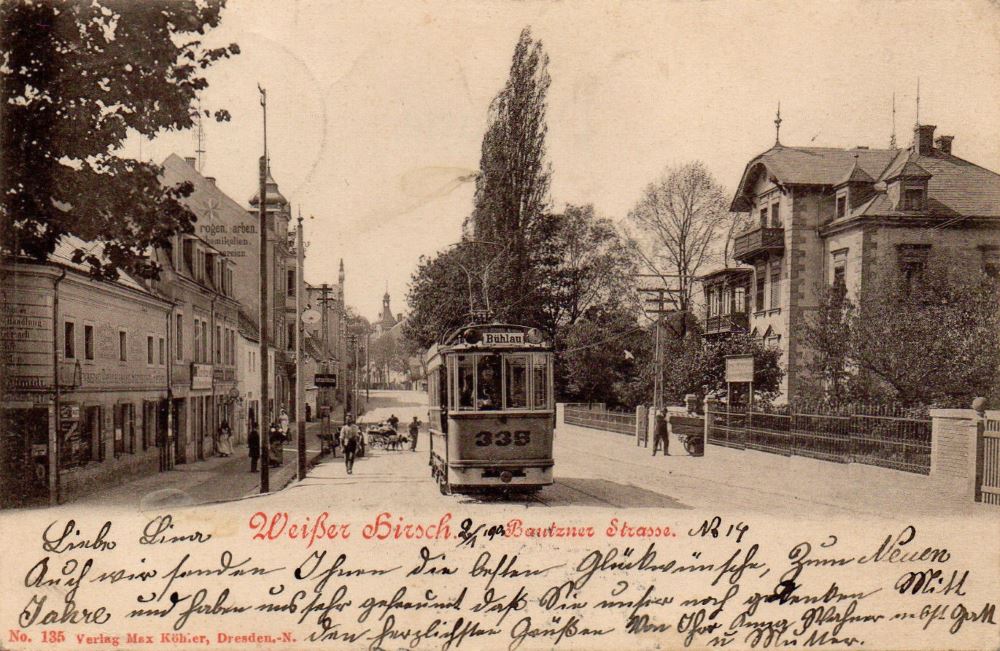 rogen, arben.
Bühlau
335
Weißer Hirsch. Bautzner Strasse. No 14
Liebe Lina
Auch wir senden Ihnen die besten Glückwünsche, Zum Neuen
Jahre und haben uns sehr gefreunt daß Sie unser noch gedenken Mitt
den herzlichsten Grüßen Von Anna Wahner nebst Gatt
u Mutter.
No. 135 Verlag Max Köhler, Dresden.-N.